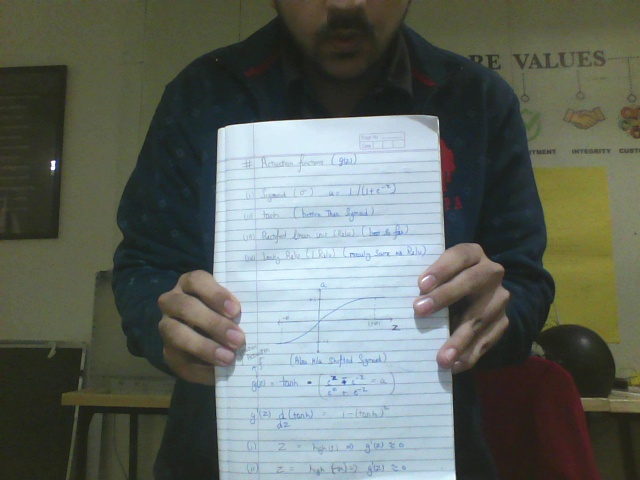 RE VALUES
TMENT INTEGRITY CUST
# Activation functions (g(z))
(i) Sigmoid (σ) a = 1/(1+e^-z)
(ii) tanh (better than Sigmoid)
(iii) Rectified linear unit (Relu) (best so far)
(iv) Leaky Relu (L Relu) (mostly same as Relu)
a
+1
-∞
z
-1
(Also aka Shifted Sigmoid)
g(z) = tanh = (e^z - e^-z / e^z + e^-z = a)
g'(z) d/dz (tanh) = 1-(tanh)^2
(i) z = high(+) => g'(z) ≈ 0
(ii) z = high (-n) => g'(z) ≈ 0